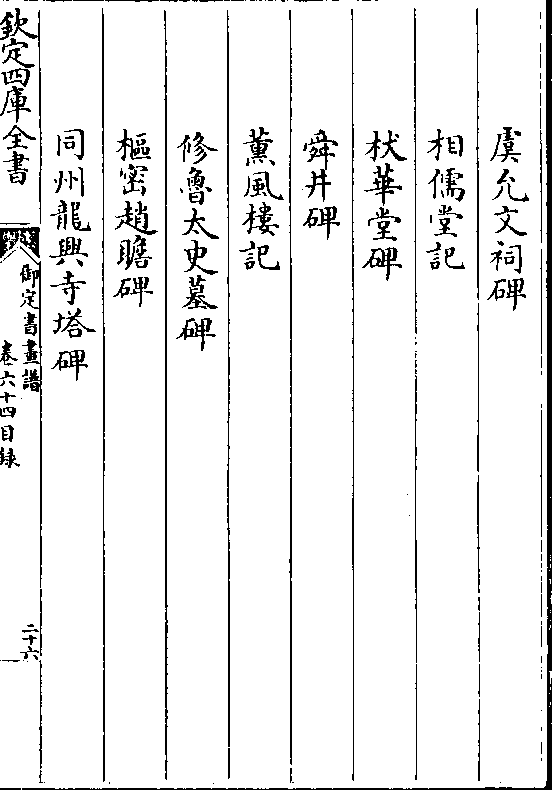 虞允文祠碑
相儒堂記
栿華堂碑
舜井碑
薫風樓記
修魯太史墓碑
樞密趙瞻碑
同州龍興寺塔碑
欽定四庫全書
御定書畫譜
卷六十四目録
二十六